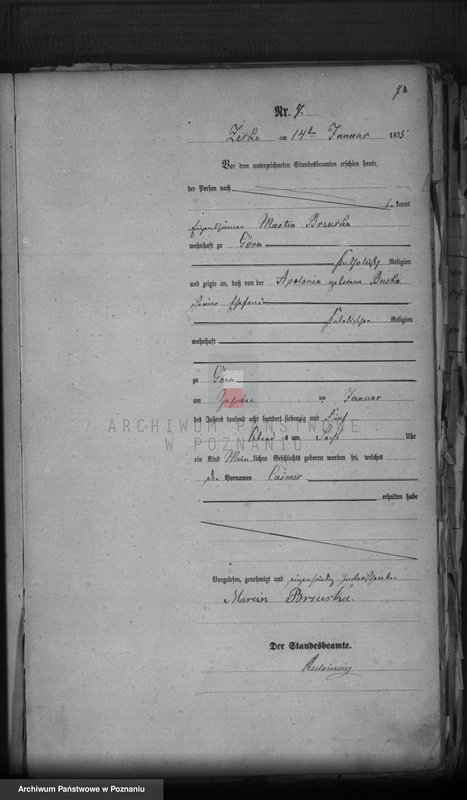 Nr. 7.
Zirke am 14ten Januar 1875
Vor dem unterzeichneten Standesbeamten erschien heute,
der Person nach
kannt
Eigenthümer Martin Brzuska
wohnhaft zu Góra
katholischer Religion
und zeigte an, daß von der Apolonia geborene Buśko
seiner Ehefrau
katholischer Religion
wohnhaft
zu Góra
am zehnten ten Januar
des Jahres tausend acht hundert siebenzig und fünf
Abend s um sechs Uhr
ein Kind männlichen Geschlechts geboren worden sei, welches
den Vornamen Casimir
erhalten habe
Vorgelesen, genehmigt und eigenhändig unterschrieben
Marcin Brzuska.
Der Standesbeamte.
ARCHIWUM PAŃSTWOWE
W POZNANIU
Archiwum Państwowe w Poznaniu